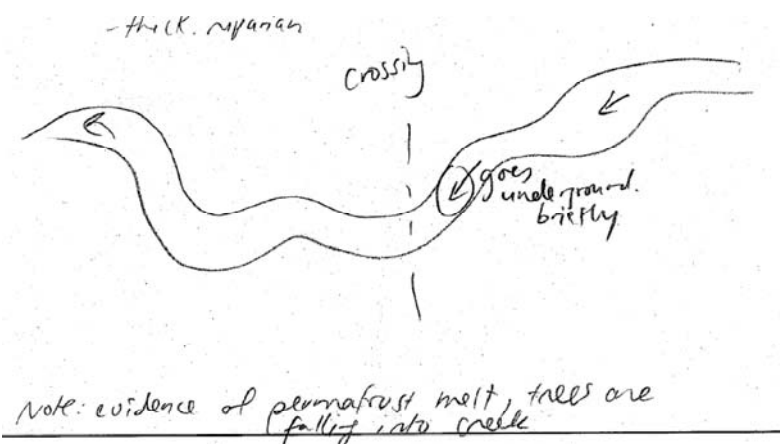 - thick riparian
Crossing
goes
underground.
briefly
Note: evidence of permafrost melt, trees are
falling into creek